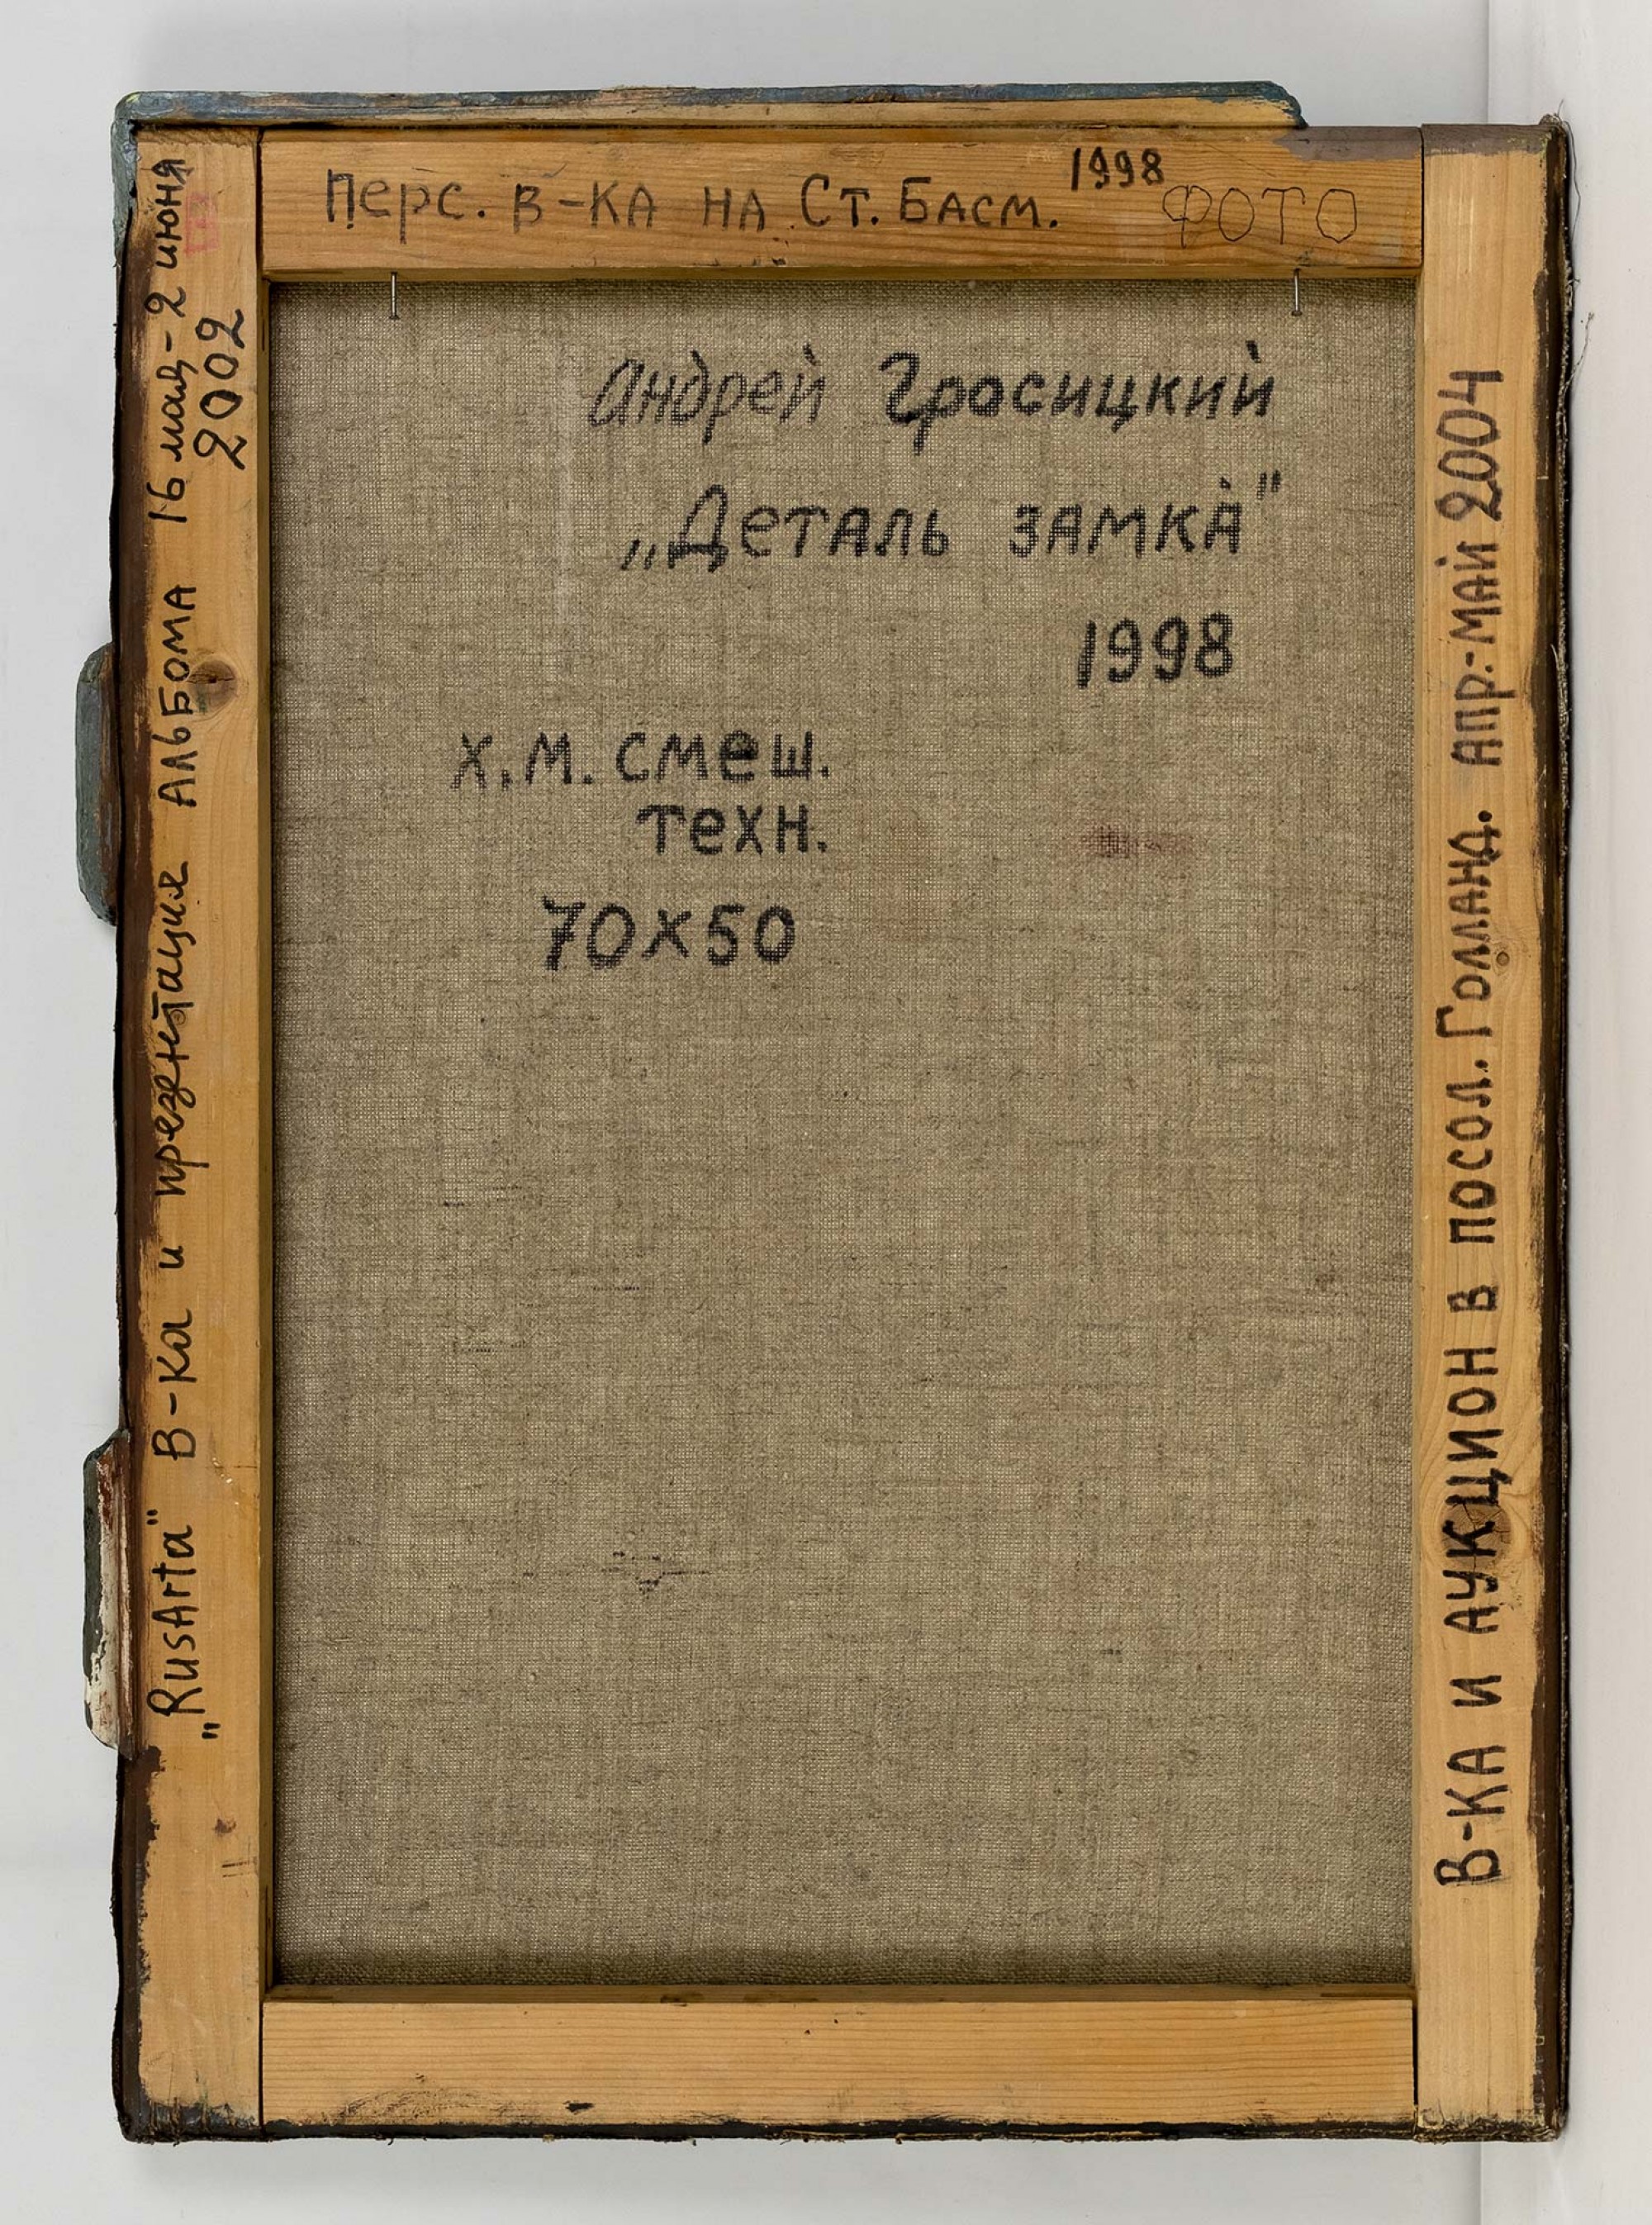 Перс. В-КА НА Ст. БАСМ. 1998 ФОТО
Андрей Гросицкий
„Деталь ЗАМКА"
1998
х.м. смеш.
техн.
70х50
„RusArta" В-ка и презентация АльБОМА 16 мая - 2 июня
2002
В-КА И АУКЦИОН В ПОСОЛ. ГОЛЛАНД. АПР.-МАЙ 2004